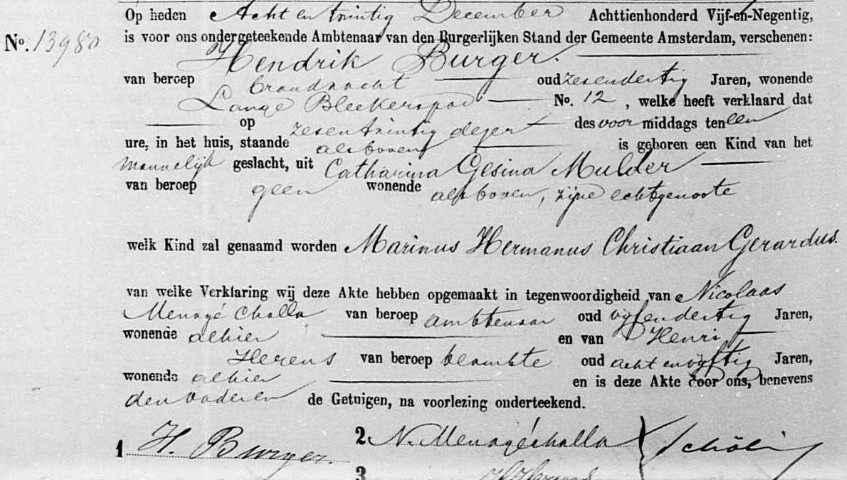 Op heden Acht en twintig December Achttienhonderd Vijf-en-Negentig,
No. 13980 is voor ons ondergeteekende Ambtenaar van den Burgerlijken Stand der Gemeente Amsterdam, verschenen:
Hendrik Burger.
van beroep brandwacht oud zesendertig Jaren, wonende
Lange Bleekerspad No. 12, welke heeft verklaard dat
op zesentwintig dezer des voor middags ten een
ure, in het huis, staande alsboven is geboren een Kind van het
mannelijk geslacht, uit Catharina Gesina Mulder
van beroep geen wonende alsboven, zijne echtgenoote
welk Kind zal genaamd worden Marinus Hermanus Christiaan Gerardus.
van welke Verklaring wij deze Akte hebben opgemaakt in tegenwoordigheid van Nicolaas
Menagé Challa van beroep ambtenaar oud vijfendertig Jaren,
wonende alhier en van Henri
Herens van beroep beambte oud acht en vijftig Jaren,
wonende alhier en is deze Akte door ons, benevens
den vader en de Getuigen, na voorlezing onderteekend.
1 H. Burger. 2 N. Menagé Challa
3